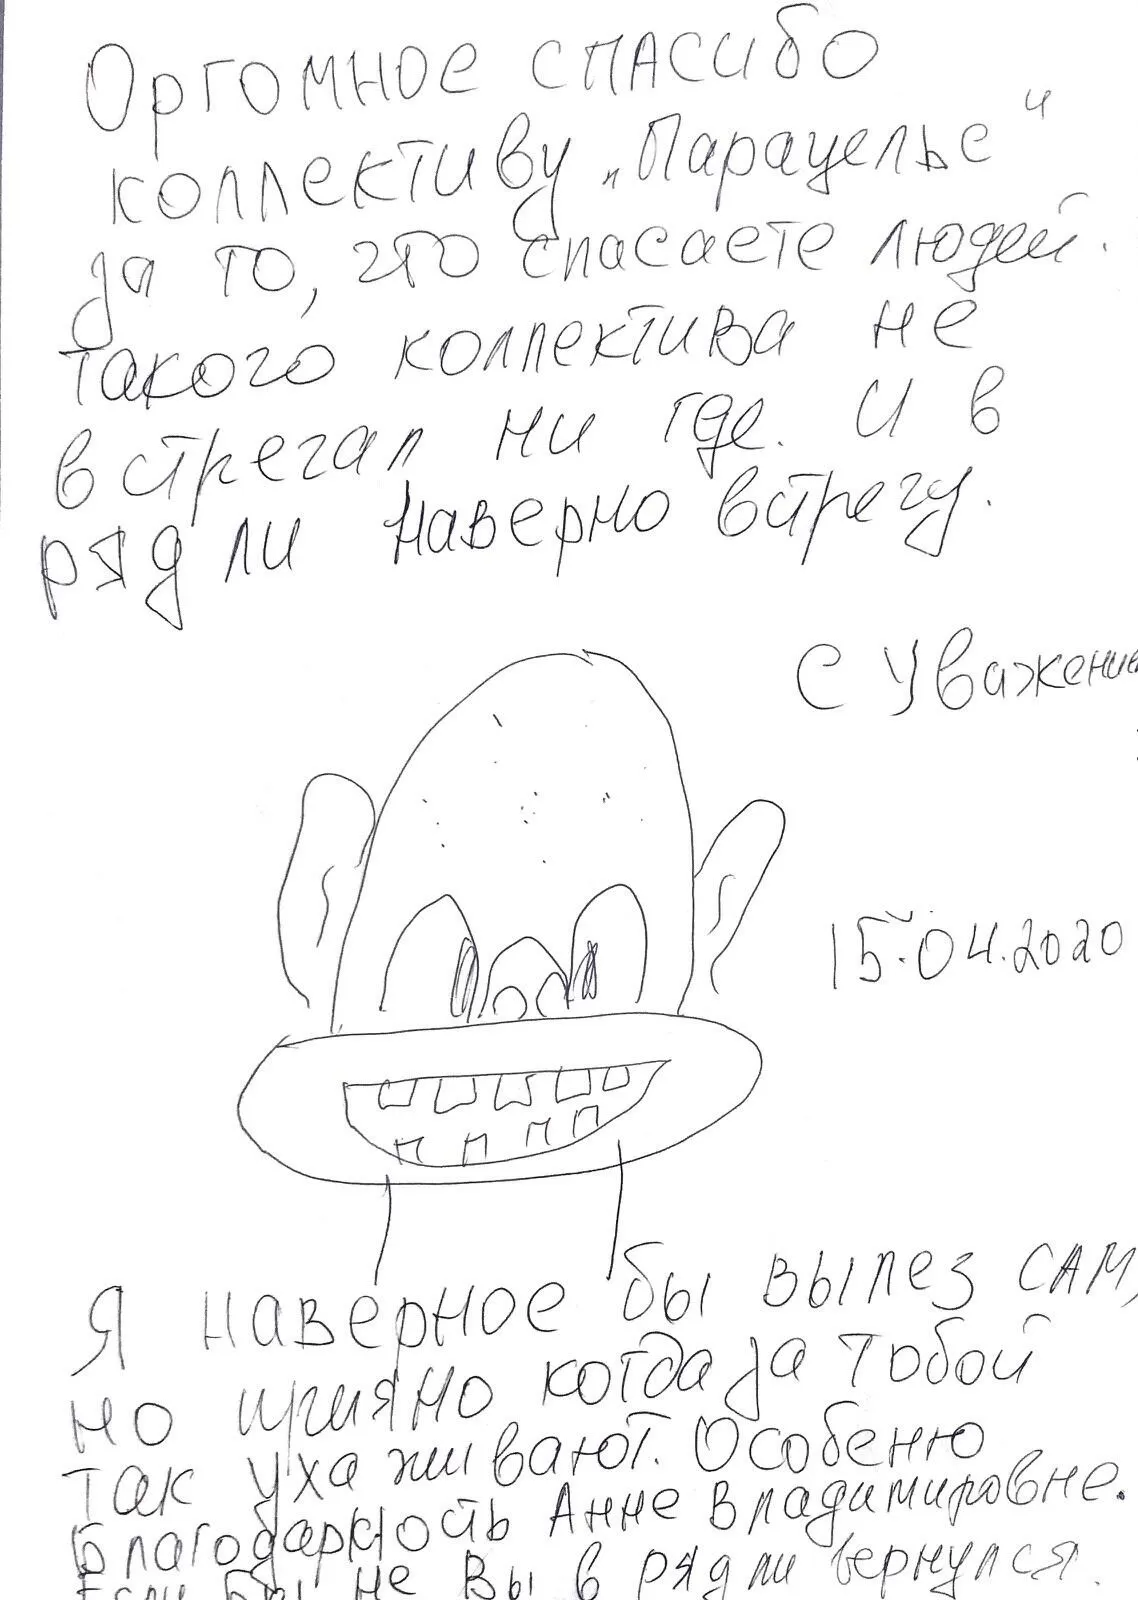 Оргомное спасибо
коллективу „Парацелье“
за то, что спасаете людей.
такого коллектива не
встречал ни где. И в
ряд ли наверно встречу.
С Уважение
15.04.2020
Я наверное бы вылез САМ,
но когда за тобой
так ухаживают. Особеню
благодарность Анне Владимировне.
Если бы не Вы в рядли вернулся.